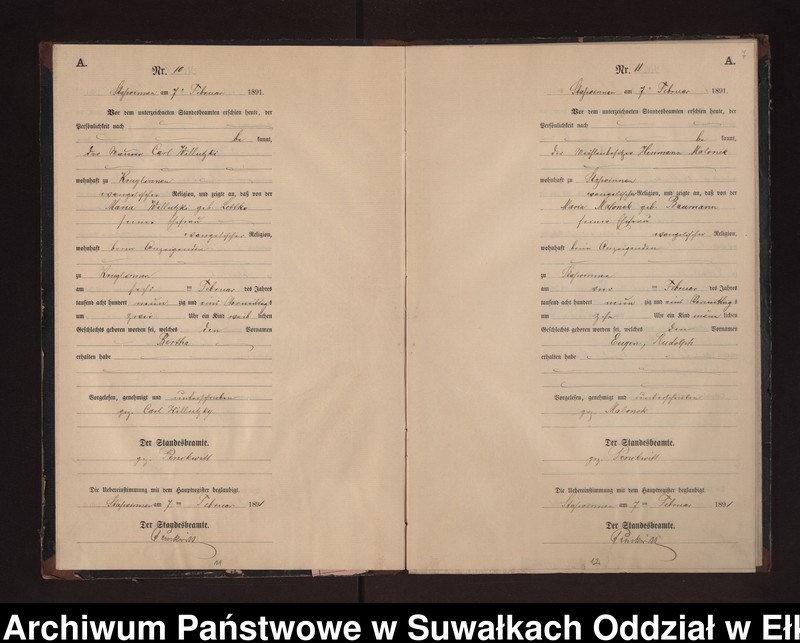 A.
Nr. 10
am 7ᵗ Februar 1891.
Vor dem unterzeichneten Standesbeamten erschien heute, der
Persönlichkeit nach
be kannt,
der Carl
wohnhaft zu
evangelischer Religion, und zeigte an, daß von der
Maria geb.
seiner Ehefrau
evangelischer Religion,
wohnhaft beim Anzeigenden
zu
am sechs ten Februar des Jahres
tausend acht hundert neun zig und eins Vormittags
um zwei Uhr ein Kind weib lichen
Geschlechts geboren worden sei, welches den Vornamen
Bertha
erhalten habe
Vorgelesen, genehmigt und unterschrieben
gez. Carl
Der Standesbeamte.
gez.
Die Uebereinstimmung mit dem Hauptregister beglaubigt.
am 7 ten Februar 1891
Der Standesbeamte.
11
A.
7
Nr. 11
am 7ᵗ Februar 1891.
Vor dem unterzeichneten Standesbeamten erschien heute, der
Persönlichkeit nach
be kannt,
der Mühlenbesitzer Herrmann Malonek
wohnhaft zu
evangelischer Religion, und zeigte an, daß von der
Maria Malonek geb. Baumann
seiner Ehefrau
evangelischer Religion,
wohnhaft beim Anzeigenden
zu
am vier ten Februar des Jahres
tausend acht hundert neun zig und eins Vormittags
um zehn Uhr ein Kind männ lichen
Geschlechts geboren worden sei, welches den Vornamen
Eugen, Rudolph
erhalten habe
Vorgelesen, genehmigt und unterschrieben
gez. Malonek
Der Standesbeamte.
gez.
Die Uebereinstimmung mit dem Hauptregister beglaubigt.
am 7 ten Februar 1891
Der Standesbeamte.
12
Archiwum Państwowe w Suwałkach Oddział w Ełk